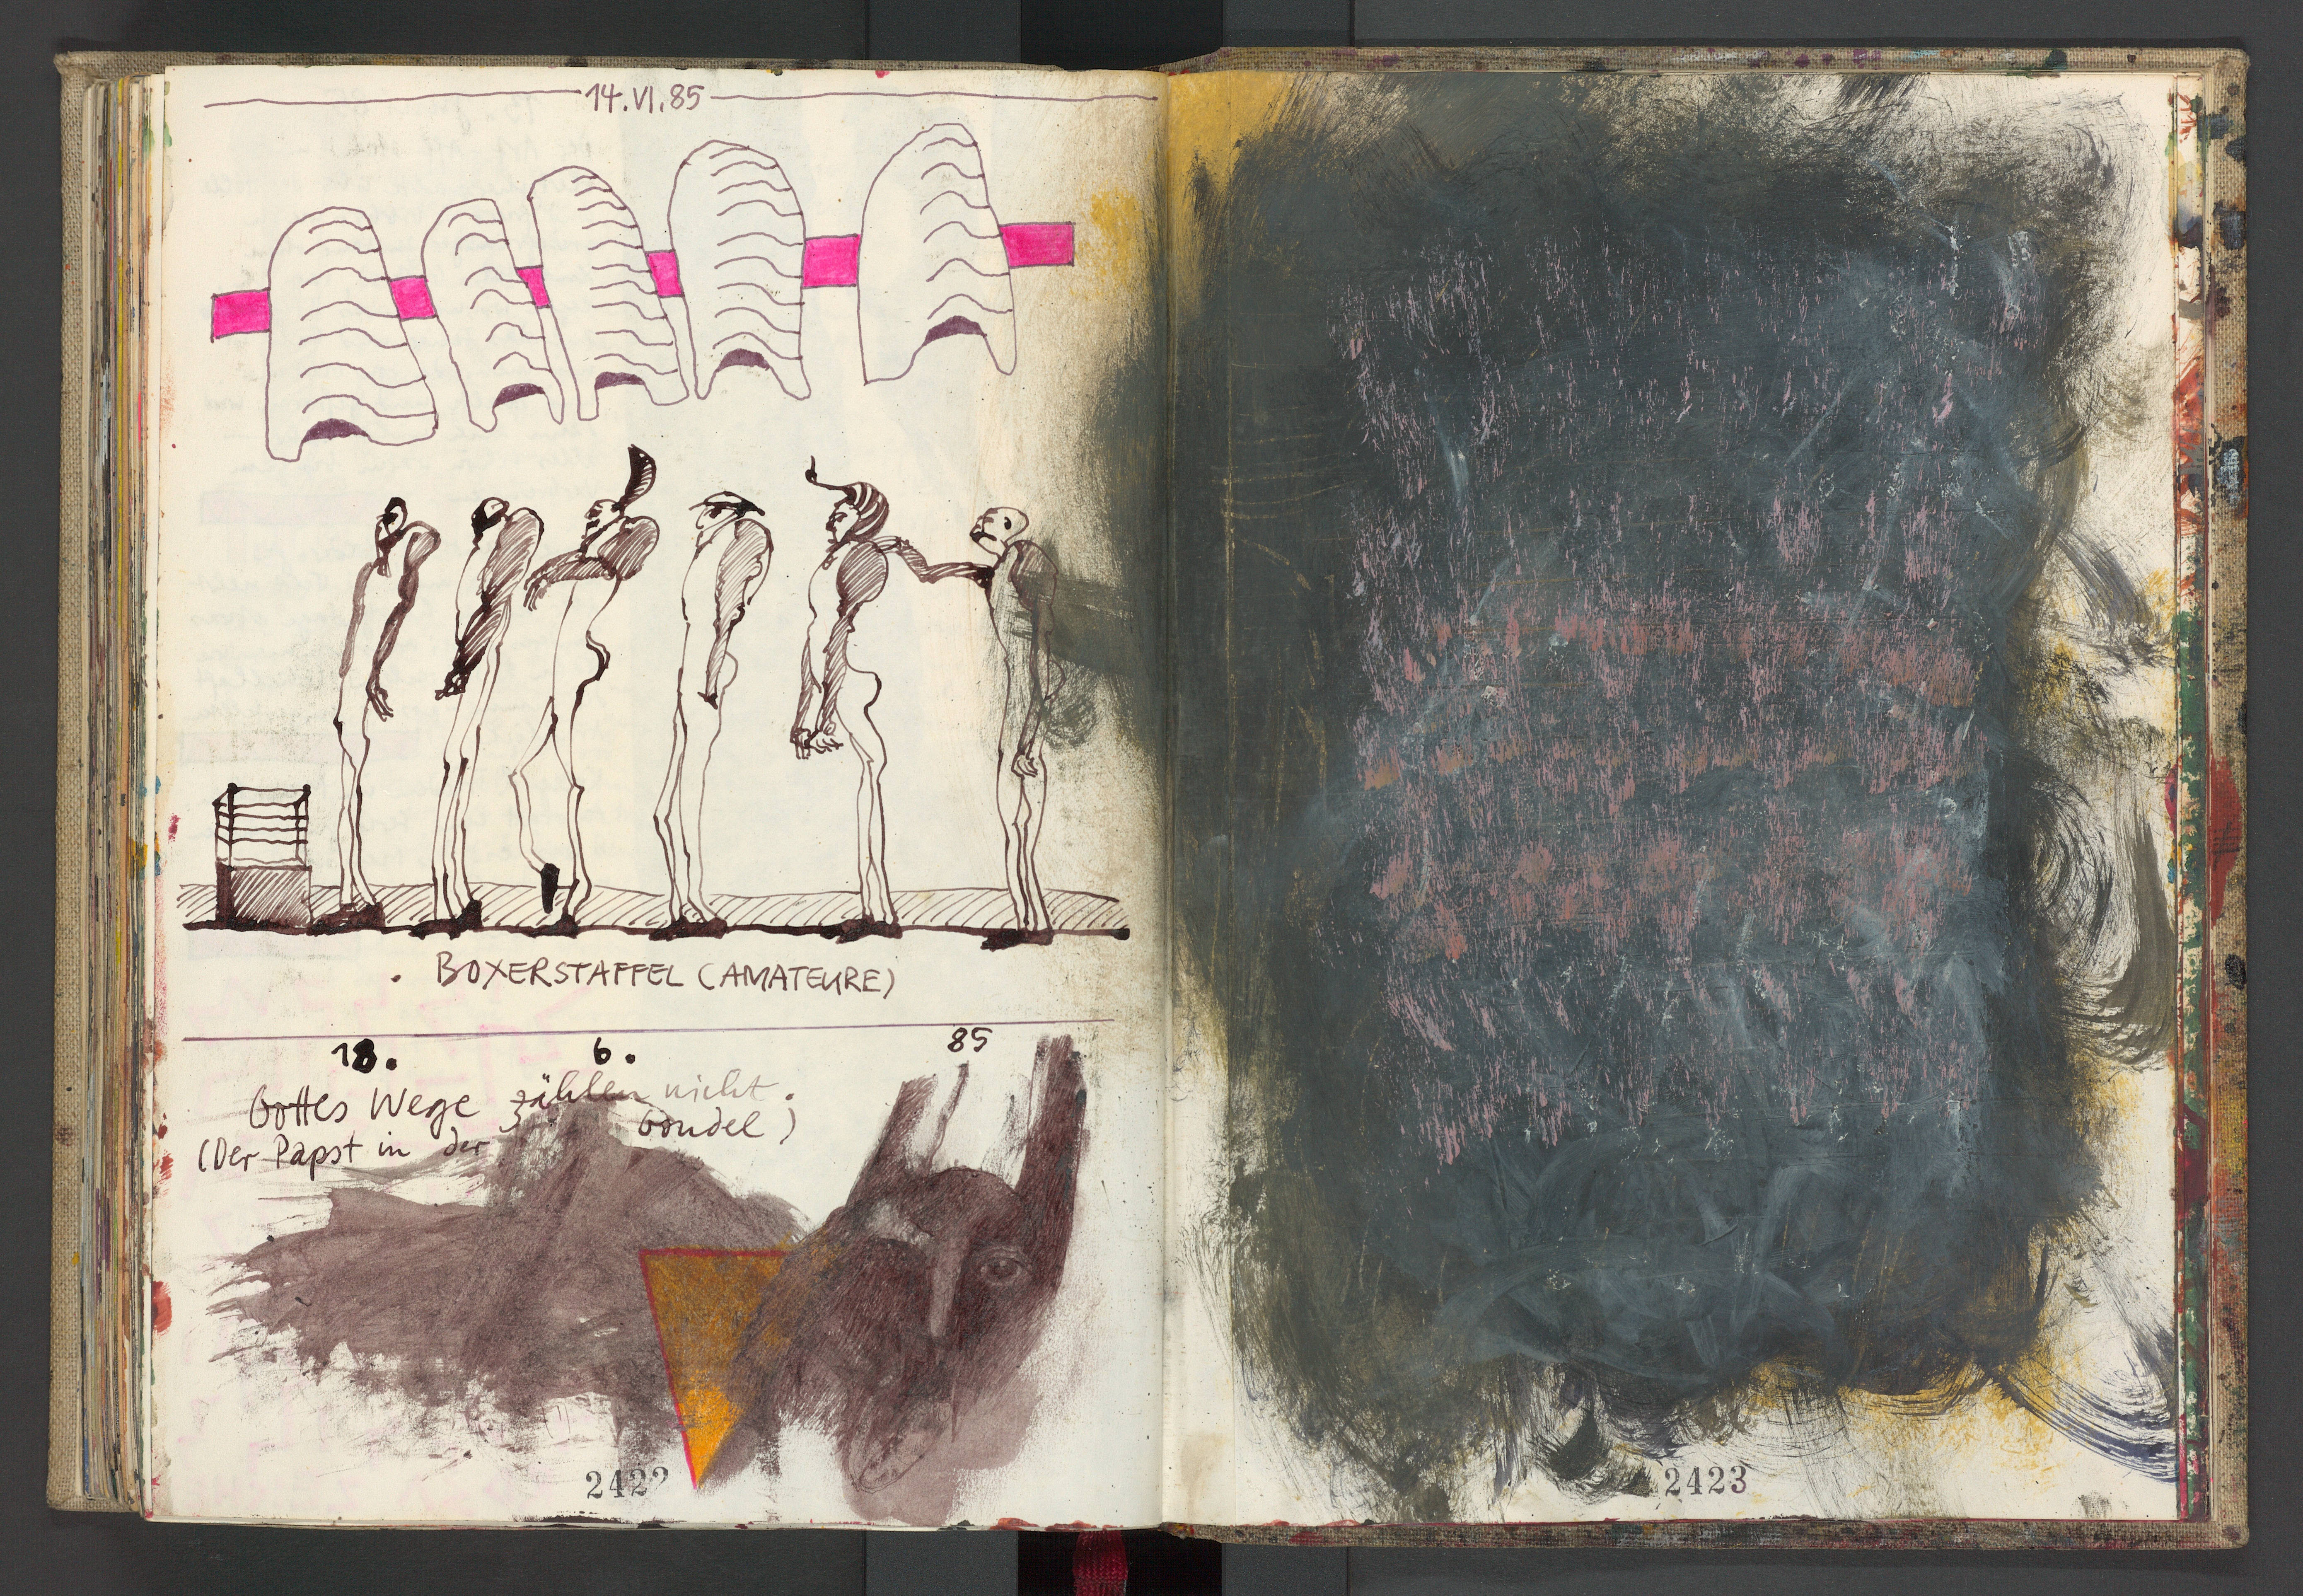 14.VI.85
. BOXERSTAFFEL (AMATEURE)
18. 6. 85
Gottes Wege zählen nicht.
(Der Papst in der Gondel)
2422
2423